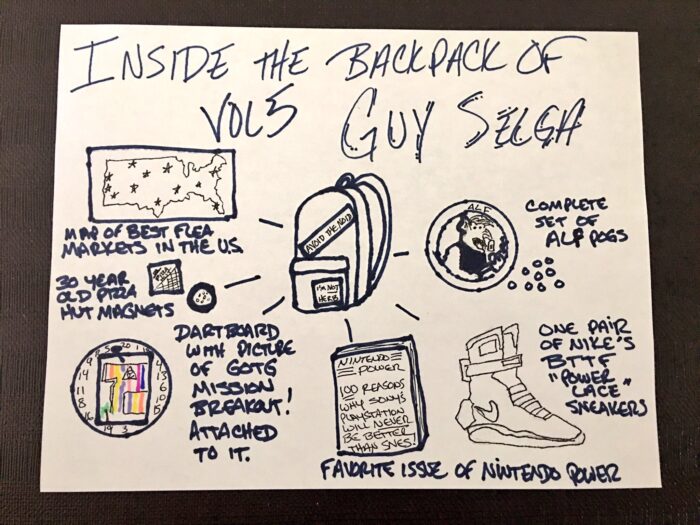 INSIDE THE BACKPACK OF
VOL 5 GUY SELGA
MAP OF BEST FLEA
MARKETS IN THE U.S.
30 YEAR
OLD PIZZA
HUT MAGNETS
AVOID THE NOID
I'M NOT
HERB
ALF
COMPLETE
SET OF
ALF POGS
DARTBOARD
WITH PICTURE
OF GOTG
MISSION
BREAKOUT!
ATTACHED
TO IT.
NINTENDO
POWER
100 REASONS
WHY SONY'S
PLAYSTATION
WILL NEVER
BE BETTER
THAN SNES!
FAVORITE ISSUE OF NINTENDO POWER
ONE PAIR
OF NIKE'S
BTTF
"POWER
LACE"
SNEAKERS